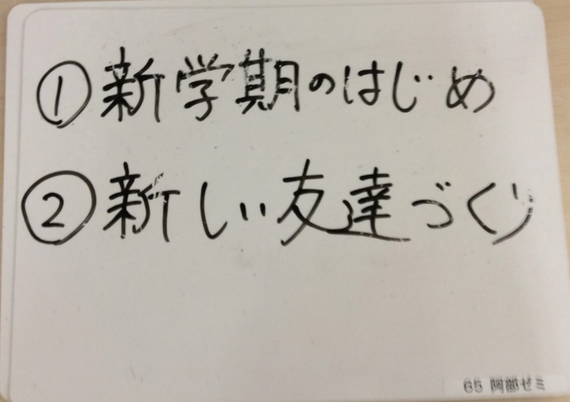 ①新学期のはじめ
②新しい友達づくり
65 阿部ゼミ